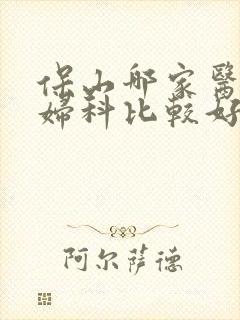 保山那家醫
婦科比較好
阿尔萨德